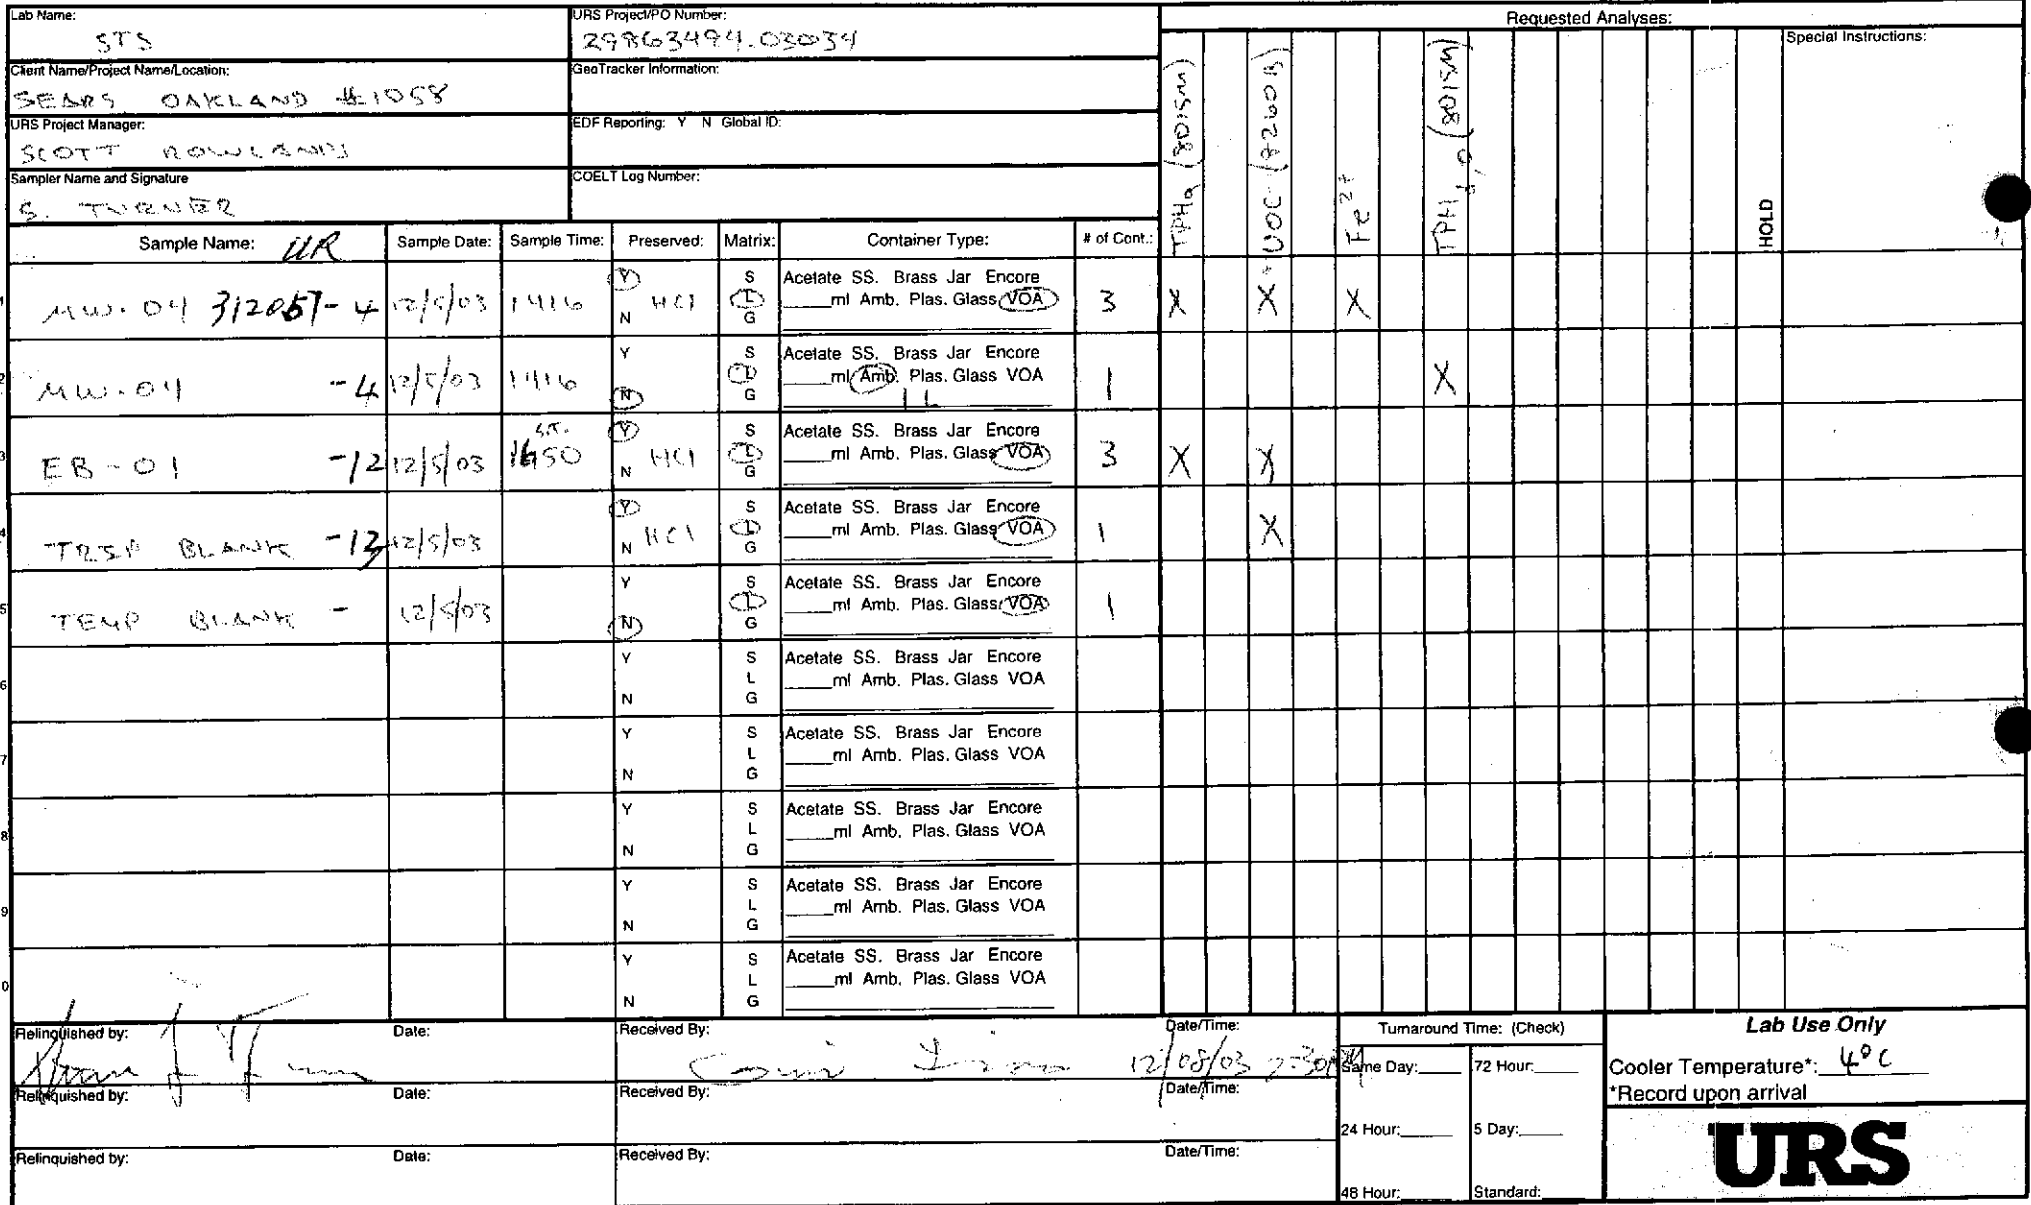 Lab Name:
STS
URS Project/PO Number:
29863494.03034
Requested Analyses:
Client Name/Project Name/Location:
SEARS OAKLAND #1058
GeoTracker Information:
URS Project Manager:
SCOTT ROWLANDS
EDF Reporting: Y N Global ID:
Sampler Name and Signature
S. TURNER
COELT Log Number:
TPHg (8015M)
VOC (8260B)
Fe2+
TPH (8015M)
HOLD
Special Instructions:
Sample Name: UR
Sample Date:
Sample Time:
Preserved:
Matrix:
Container Type:
# of Cont.:
1 MW-04 312057-4 12/5/03 1416 Y N HCl S L G Acetate SS. Brass Jar Encore
____ml Amb. Plas. Glass VOA 3 X X X
2 MW-04 -4 12/5/03 1416 Y N S L G Acetate SS. Brass Jar Encore
____ml Amb. Plas. Glass VOA 1 X
1L
3 EB-01 -12 12/5/03 1650 S.T. Y N HCl S L G Acetate SS. Brass Jar Encore
____ml Amb. Plas. Glass VOA 3 X X
4 TRIP BLANK -13 12/5/03 Y N HCl S L G Acetate SS. Brass Jar Encore
____ml Amb. Plas. Glass VOA 1 X
5 TEMP BLANK - 12/5/03 Y N S L G Acetate SS. Brass Jar Encore
____ml Amb. Plas. Glass VOA 1
6 Y N S L G Acetate SS. Brass Jar Encore
____ml Amb. Plas. Glass VOA
7 Y N S L G Acetate SS. Brass Jar Encore
____ml Amb. Plas. Glass VOA
8 Y N S L G Acetate SS. Brass Jar Encore
____ml Amb. Plas. Glass VOA
9 Y N S L G Acetate SS. Brass Jar Encore
____ml Amb. Plas. Glass VOA
0 Y N S L G Acetate SS. Brass Jar Encore
____ml Amb. Plas. Glass VOA
Relinquished by: Date:
Received By: Date/Time:
12/08/03
Relinquished by: Date:
Received By: Date/Time:
Relinquished by: Date:
Received By: Date/Time:
Turnaround Time: (Check)
Same Day:____ 72 Hour:____
24 Hour:____ 5 Day:____
48 Hour:____ Standard:____
Lab Use Only
Cooler Temperature*: 4°C
*Record upon arrival
URS